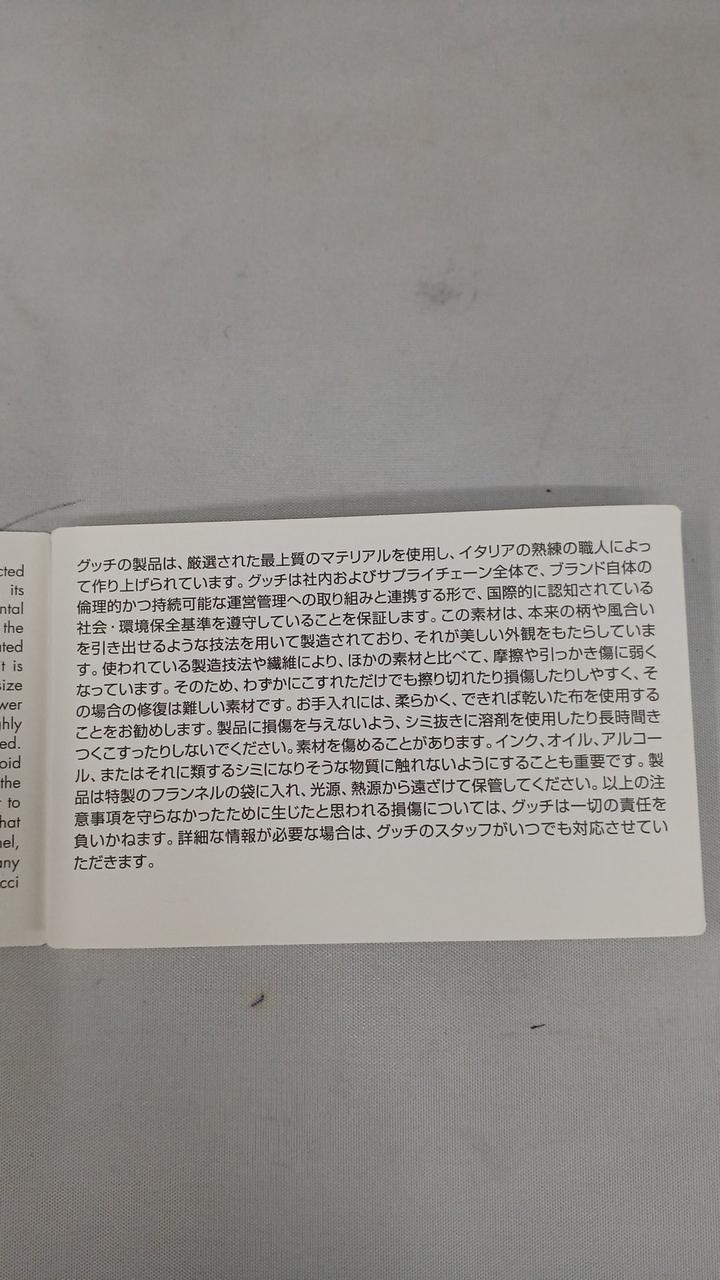 cted
its
ntal
the
ated
t is
size
wer
ghly
ed.
oid
the
to
hat
nel,
any
cci
グッチの製品は、厳選された最上質のマテリアルを使用し、イタリアの熟練の職人によっ
て作り上げられています。グッチは社内およびサプライチェーン全体で、ブランド自体の
倫理的かつ持続可能な運営管理への取り組みと連携する形で、国際的に認知されている
社会・環境保全基準を遵守していることを保証します。この素材は、本来の柄や風合い
を引き出せるような技法を用いて製造されており、それが美しい外観をもたらしていま
す。使われている製造技法や繊維により、ほかの素材と比べて、摩擦や引っかき傷に弱く
なっています。そのため、わずかにこすれただけでも擦り切れたり損傷したりしやすく、そ
の場合の修復は難しい素材です。お手入れには、柔らかく、できれば乾いた布を使用する
ことをお勧めします。製品に損傷を与えないよう、シミ抜きに溶剤を使用したり長時間き
つくこすったりしないでください。素材を傷めることがあります。インク、オイル、アルコー
ル、またはそれに類するシミになりそうな物質に触れないようにすることも重要です。製
品は特製のフランネルの袋に入れ、光源、熱源から遠ざけて保管してください。以上の注
意事項を守らなかったために生じたと思われる損傷については、グッチは一切の責任を
負いかねます。詳細な情報が必要な場合は、グッチのスタッフがいつでも対応させてい
ただきます。